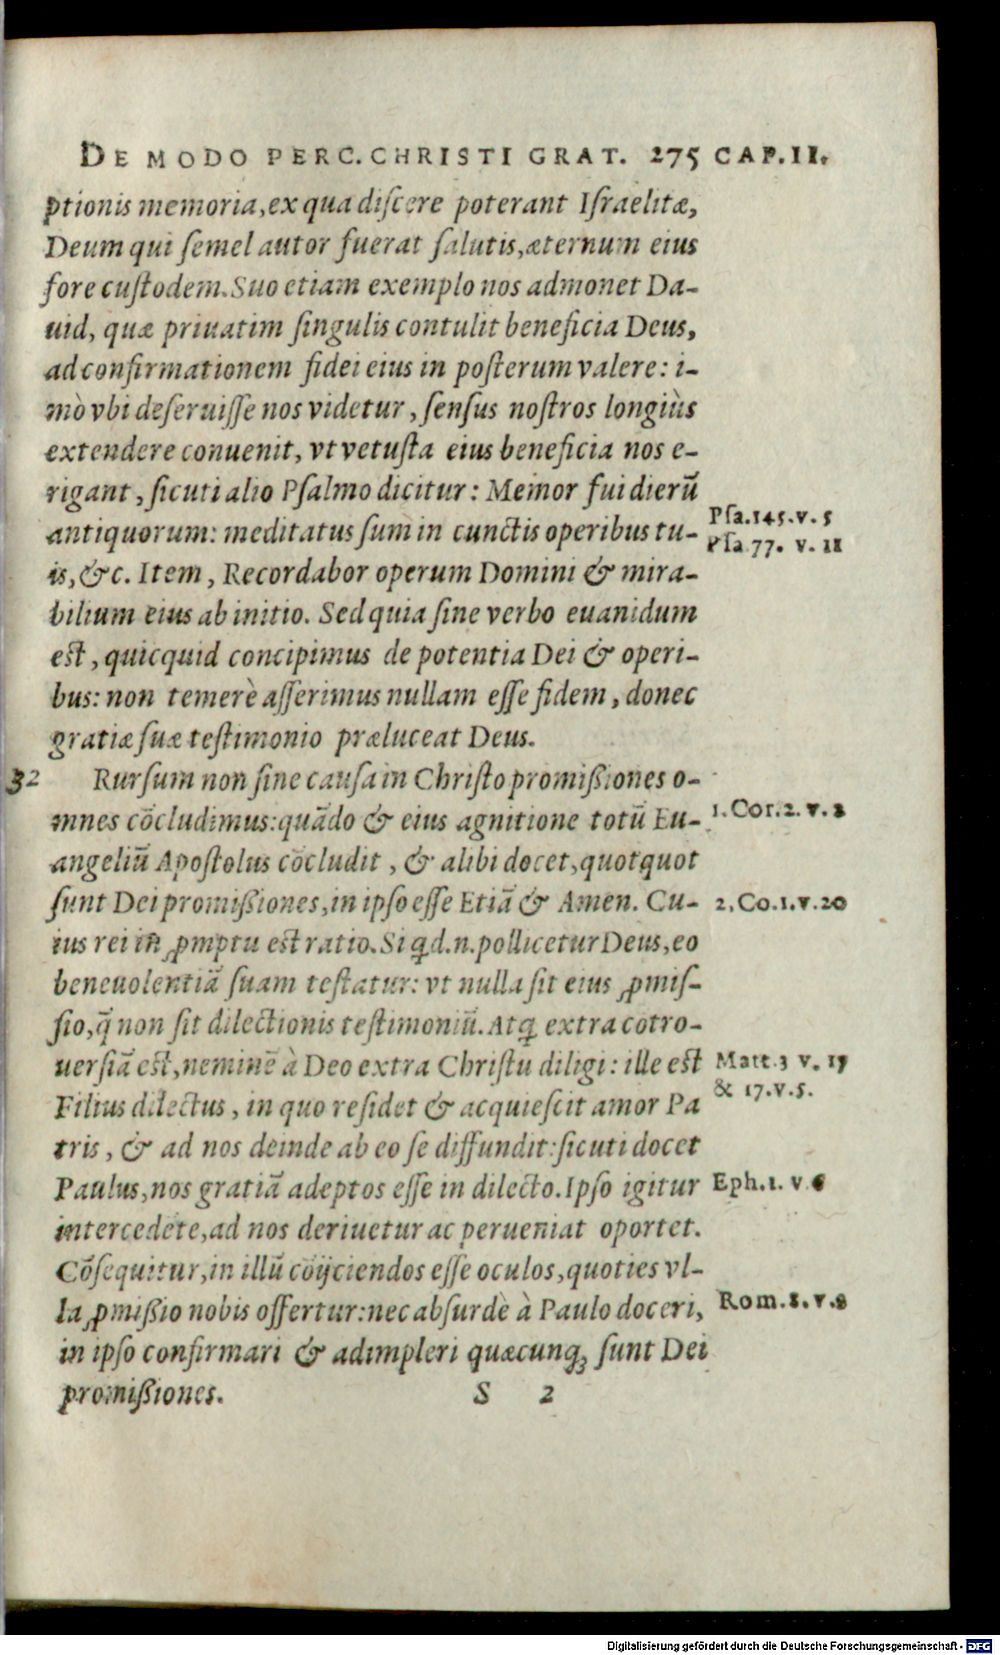 DE MODO PERC. CHRISTI GRAT. 275 CAP. II.
ptionis memoria, ex qua discere poterant Israelitæ,
Deum qui semel autor fuerat salutis, æternum eius
fore custodem. Suo etiam exemplo nos admonet Da-
uid, quæ priuatim singulis contulit beneficia Deus,
ad confirmationem fidei eius in posterum valere: i-
mò vbi deseruisse nos videtur, sensus nostros longiùs
extendere conuenit, vt vetusta eius beneficia nos e-
rigant, sicuti alio Psalmo dicitur: Memor fui dierũ
antiquorum: meditatus sum in cunctis operibus tu-
Psa. 145. v. 5
Psa 77. v. 11
is, &c. Item, Recordabor operum Domini & mira-
bilium eius ab initio. Sed quia sine verbo euanidum
est, quicquid concipimus de potentia Dei & operi-
bus: non temerè asserimus nullam esse fidem, donec
gratiæ suæ testimonio præluceat Deus.
32 Rursum non sine causa in Christo promißiones o-
mnes cõcludimus: quãdo & eius agnitione totũ Eu-
1. Cor. 2. v. 2
angeliũ Apostolus cõcludit, & alibi docet, quotquot
sunt Dei promißiones, in ipso esse Etiã & Amen. Cu-
2. Co. 1. v. 20
ius rei in ꝓmptu est ratio. Si qd. n. pollicetur Deus, eo
beneuolentiã suam testatur: vt nulla sit eius ꝓmis-
sio, q̃ non sit dilectionis testimoniũ. Atq; extra cotro-
uersiã est, neminẽ à Deo extra Christũ diligi: ille est
Matt. 3 v. 17
& 17. v. 5.
Filius dilectus, in quo residet & acquiescit amor Pa
tris, & ad nos deinde ab eo se diffundit: sicuti docet
Paulus, nos gratiã adeptos esse in dilecto. Ipso igitur
Eph. 1. v. 6
intercedẽte, ad nos deriuetur ac perueniat oportet.
Cõsequitur, in illũ cõijciendos esse oculos, quoties vl-
la ꝓmißio nobis offertur: nec absurdè à Paulo doceri,
Rom. 1. v. 8
in ipso confirmari & adimpleri quæcunq; sunt Dei
promißiones. S 2
Digitalisierung gefördert durch die Deutsche Forschungsgemeinschaft - DFG